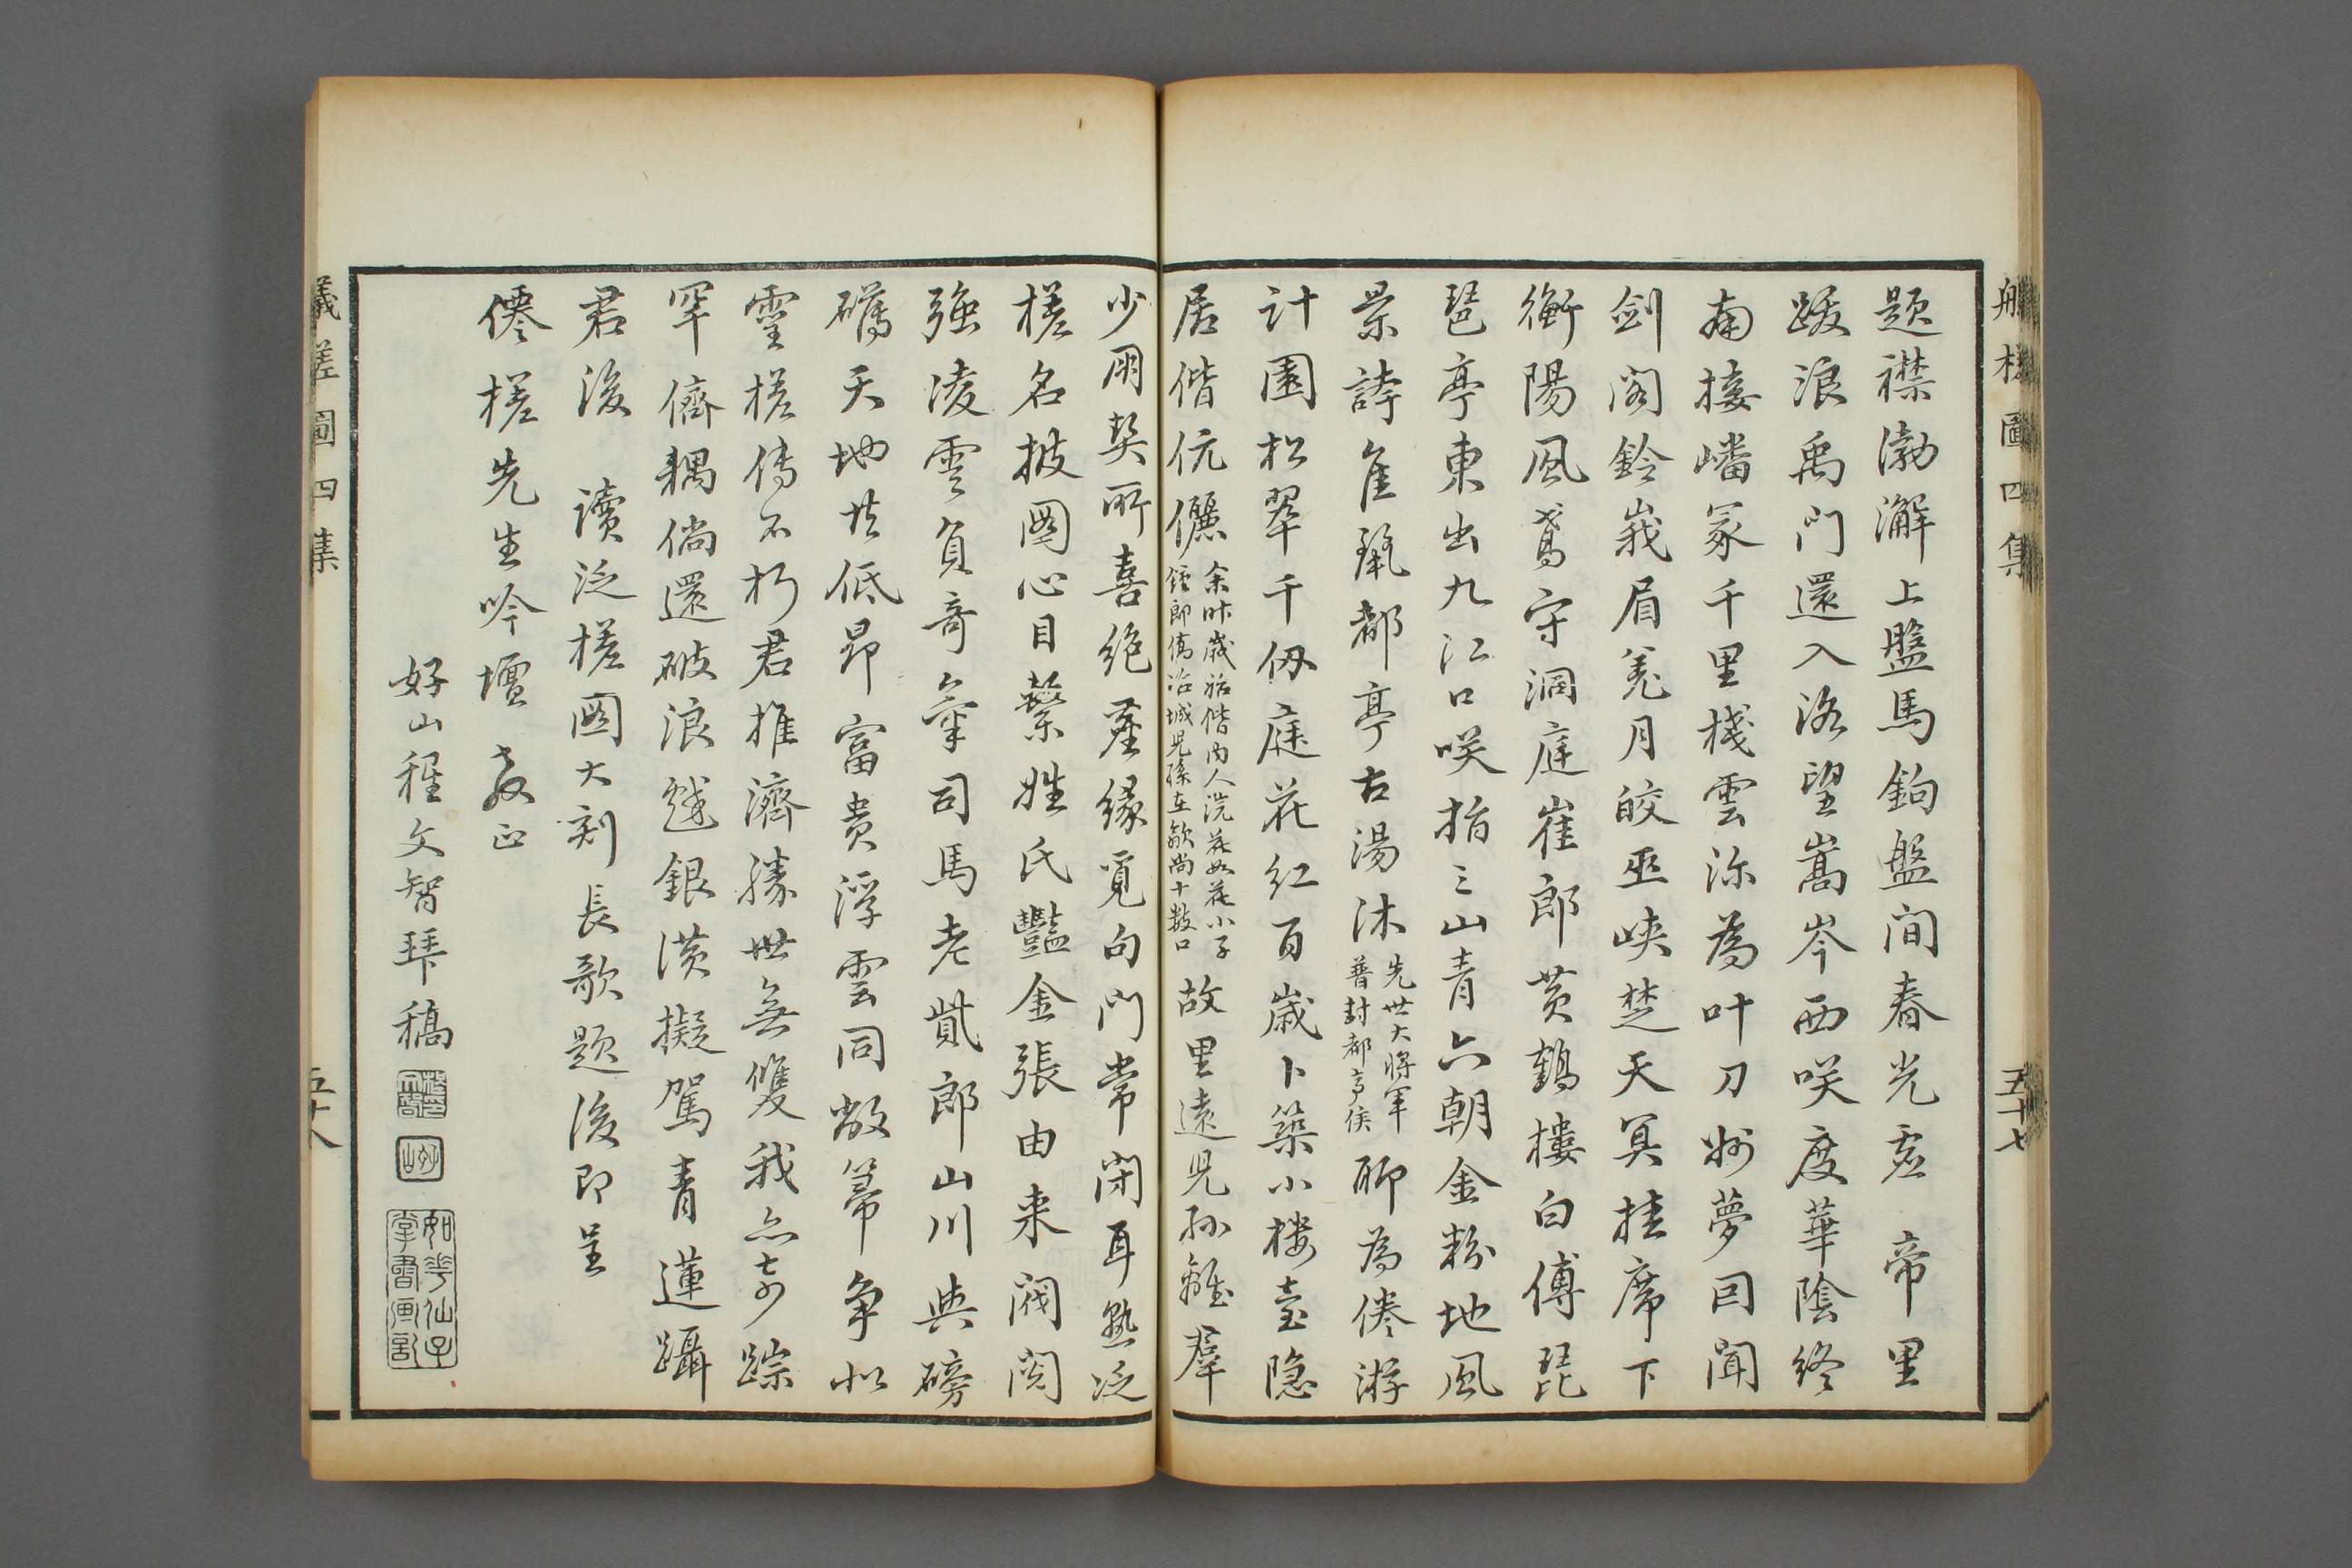 題襟渤澥上盤馬鉤盤間春光虛　帝里
跋浪禹門還入洛望嵩岑西咲度華陰終
南接嶓冢千里棧雲深為叶刀州夢回聞
劍閣鈴峩眉羌月皎巫峽楚天冥挂席下
衡陽風鳶守洞庭崔郎黃鶴樓白傅琵
琶亭東出九江口咲指三山青六朝金粉地風
景詩隹甃都亭古湯沐先世大將軍
晉封都亭侯聊為倦游
計園松翠千仞庭花紅百歲卜築小樓臺隱
居偕伉儷余昨歲從偕內人浣花如花小子
鍾郎僑冶城兒孫在歙尚十數口故里遠兒孫離羣
少朋契所喜絕塵緣覓句門常閉耳熟泛
槎名披圖心目縈姓氏豔金張由來閥閱
強凌雲負奇氣司馬老貲郎山川與磅
礴天地共低昂富貴浮雲同敝帚爭似
靈槎傳不朽君推濟勝世無雙我亦奇踪
罕儕耦倘還破浪越銀潢擬駕青蓮躡
君後　讀泛槎圖大刻長歌題後即呈
僊槎先生吟壇　教正
好山程文智琴稿
如花仙子
掌書画記
槎圖四集
五十七
槎圖四集
五十八